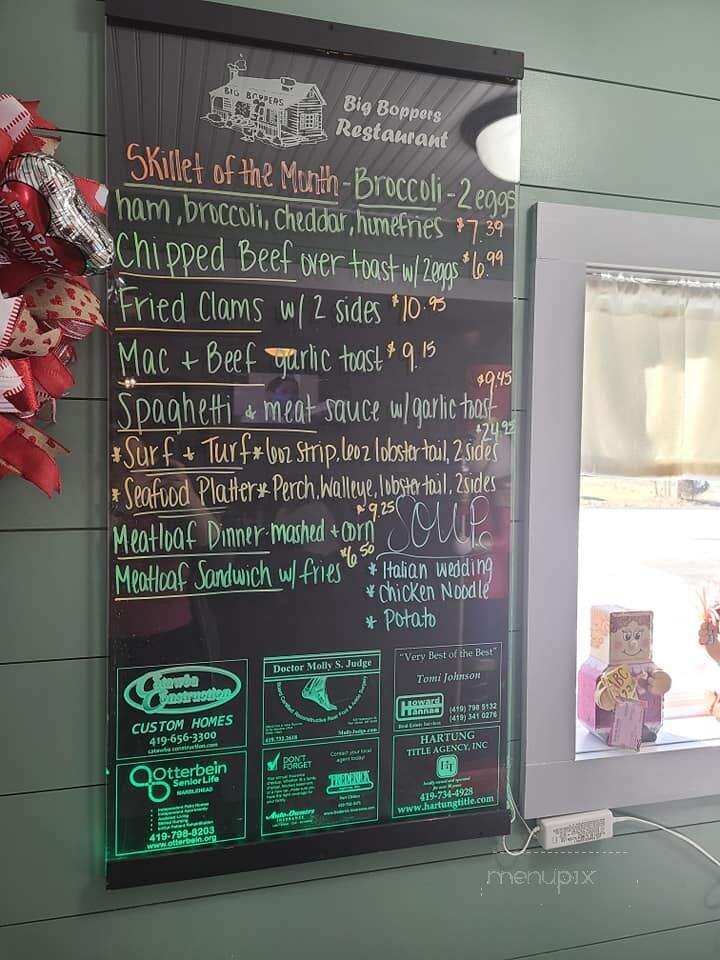 BIG BOPPERS
Big Boppers
Restaurant
Skillet of the Month - Broccoli - 2 eggs
ham, broccoli, cheddar, humefries $7.39
Chipped Beef over toast w/ 2 eggs $6.99
Fried Clams w/ 2 sides $10.95
Mac + Beef garlic toast $9.15
$9.45
Spaghetti & meat sauce w/ garlic toast
$24.95
*Surf + Turf* 6oz strip, 6oz lobster tail, 2 sides
*Seafood Platter* Perch, Walleye, lobster tail, 2 sides
$9.25
Meatloaf Dinner - mashed + corn
$6.50
Meatloaf Sandwich w/ fries
SOUP
* Italian wedding
* Chicken Noodle
* Potato
Catawba
Construction
CUSTOM HOMES
419-656-3300
catawba construction.com
Doctor Molly S. Judge
Board Certified Reconstructive Rear Foot & Ankle Surgery
MollyJudge.com
"Very Best of the Best"
Tomi Johnson
Howard
Hanna
Real Estate Services
(419) 798 5132
(419) 341 0276
Otterbein
Senior Life
MARBLEHEAD
Independent Patio Homes
Independent Apartments
Assisted Living
419-798-8203
www.otterbein.org
DON'T
FORGET
Contact your local
agent today!
FREDERICK
Auto-Owners
INSURANCE
HARTUNG
TITLE AGENCY, INC
locally owned and operated
419-734-4928
www.hartungtitle.com
HAPPY
VALENTINE
ABC
menupix